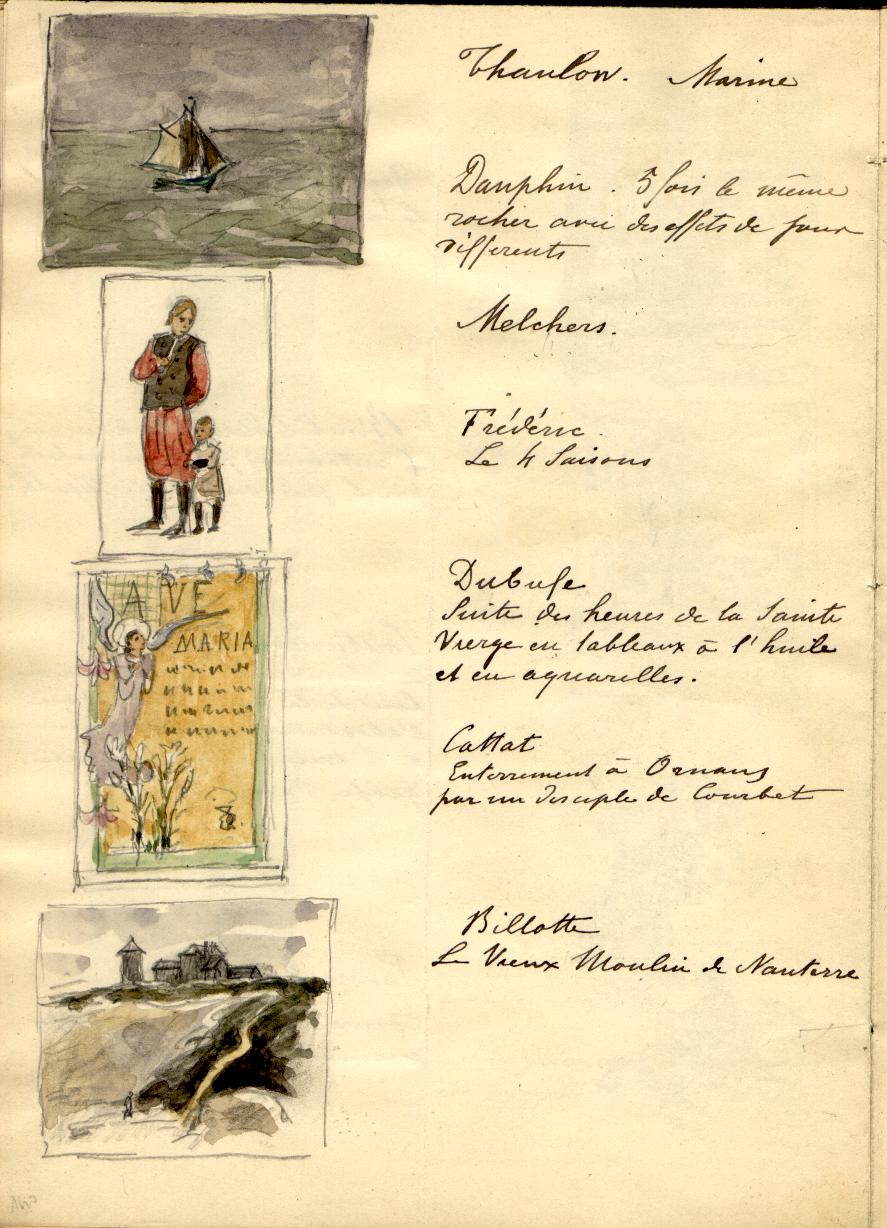 Thaulow. Marine
Dauphin. 5 fois le même
rocher avec des effets de jour
différents
Melchers.
Frédéric.
Le 4 Saisons
AVE
MARIA
Dubufe
Suite des heures de la Sainte
Vierge en tableaux à l'huile
et en aquarelles.
Cattat
Enterrement à Ornans
par un disciple de Courbet
Billotte
Le Vieux Moulin de Nanterre